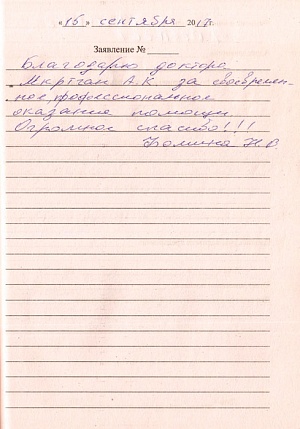 «15» сентября 2017г.
Заявление №
Благодарю доктора
Мкртчян А.К. за своевремен-
ное, профессиональное
оказание помощи.
Огромное спасибо!!!
Фомина Н.В